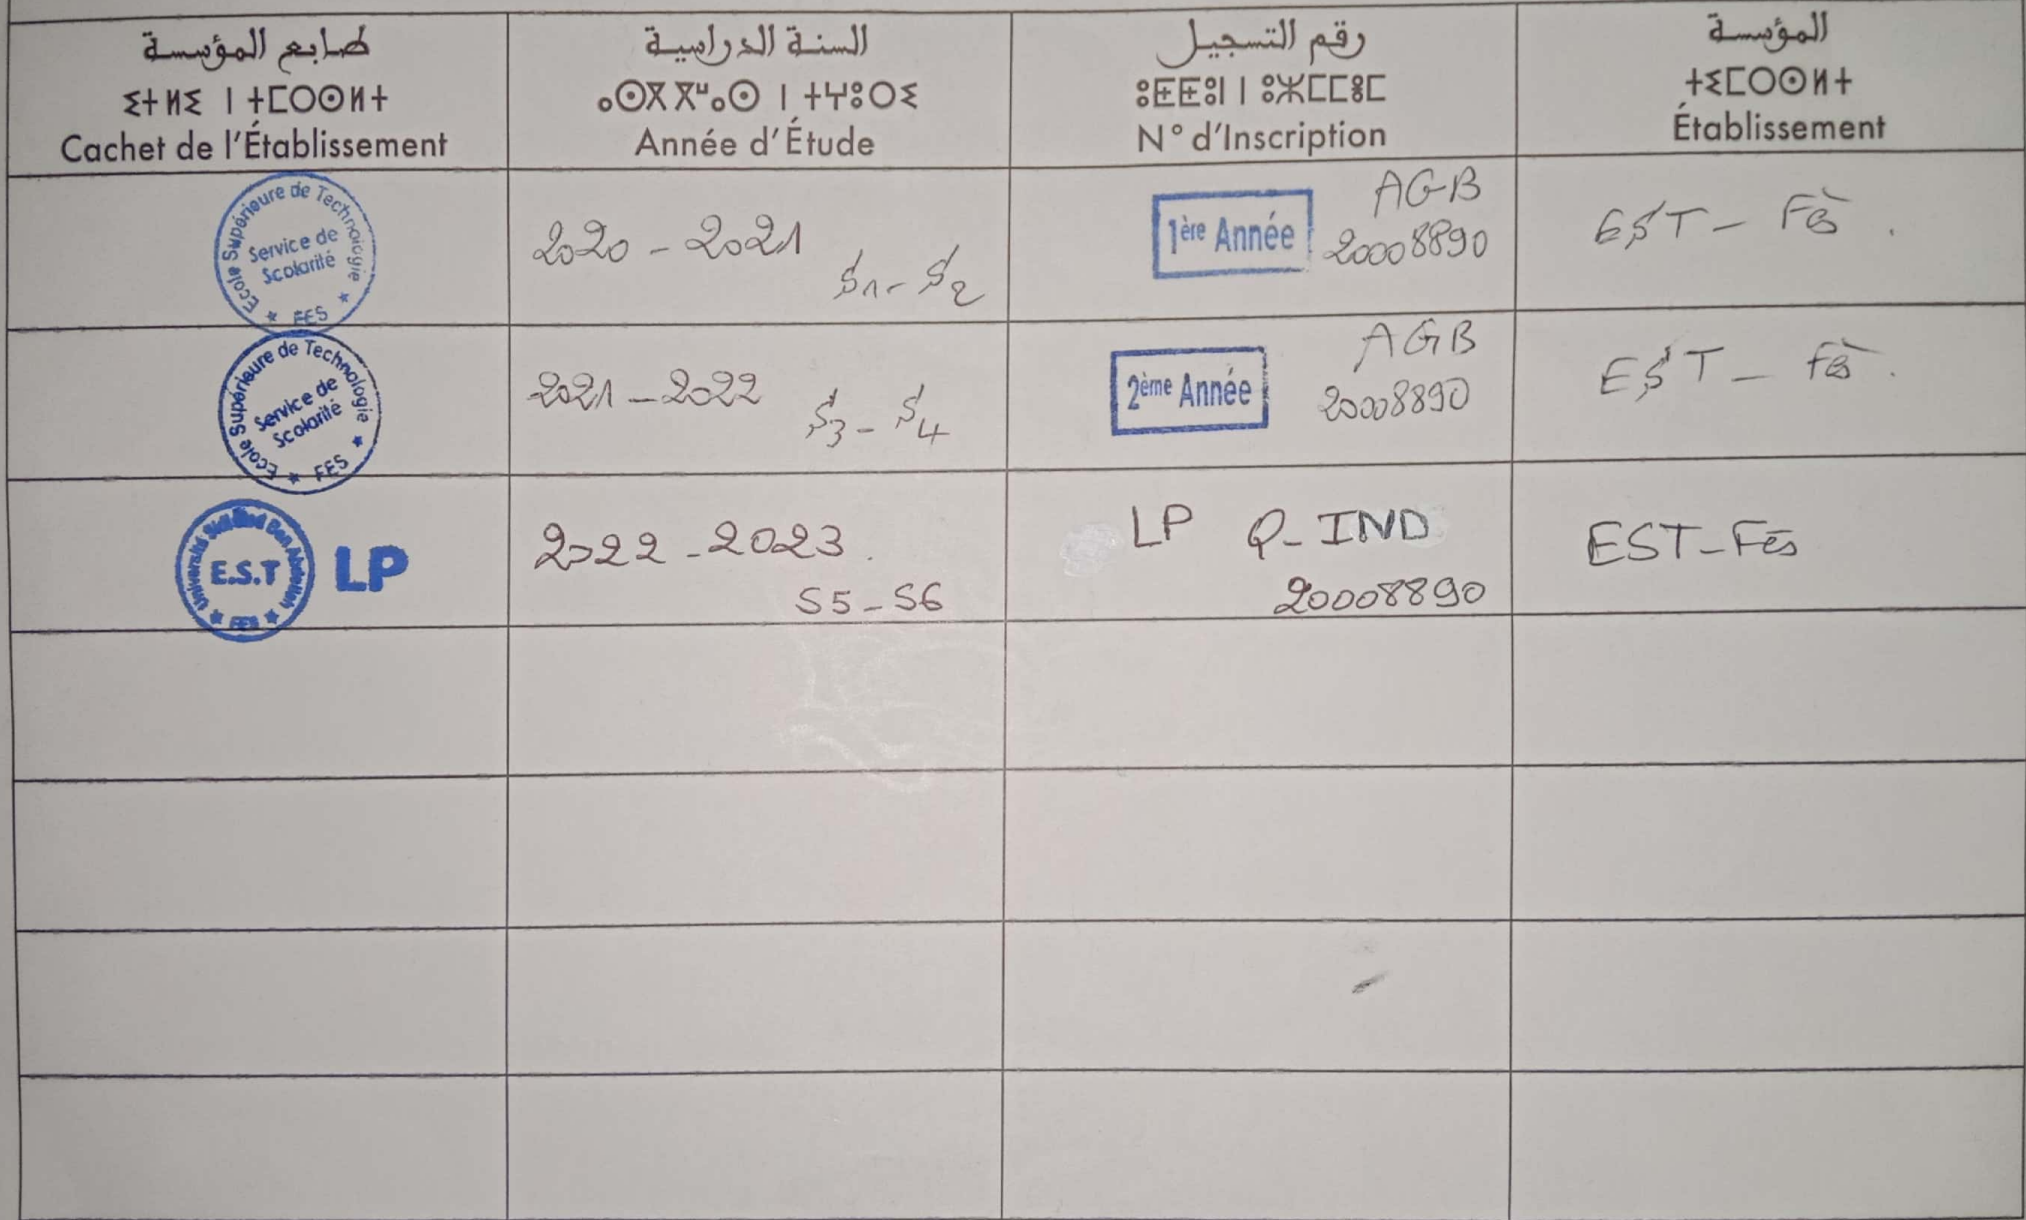 طابع المؤسسة
ⵉⵜⵍⵉ ⵏ ⵜⵎⵔⵙⵍⵜ
Cachet de l'Établissement
السنة الدراسية
ⴰⵙⴳⴳⵯⴰⵙ ⵏ ⵜⵖⵓⵔⵉ
Année d'Étude
رقم التسجيل
ⵓⵟⵟⵓⵏ ⵏ ⵓⵣⵎⵎⵓⵎ
N° d'Inscription
المؤسسة
ⵜⵉⵎⵔⵙⵍⵜ
Établissement
Ecole Supérieure de Technologie
Service de
Scolarité
★ FES ★
2020 - 2021
S1 - S2
1ère Année
AGB
20008890
EST - Fès.
Ecole Supérieure de Technologie
Service de
Scolarité
★ FES ★
2021 - 2022
S3 - S4
2ème Année
AGB
20008890
EST - Fès.
Université Sidi Med Ben Abdellah
E.S.T
★ FES ★
LP
2022 - 2023.
S5 - S6
LP Q-IND
20008890
EST-Fès